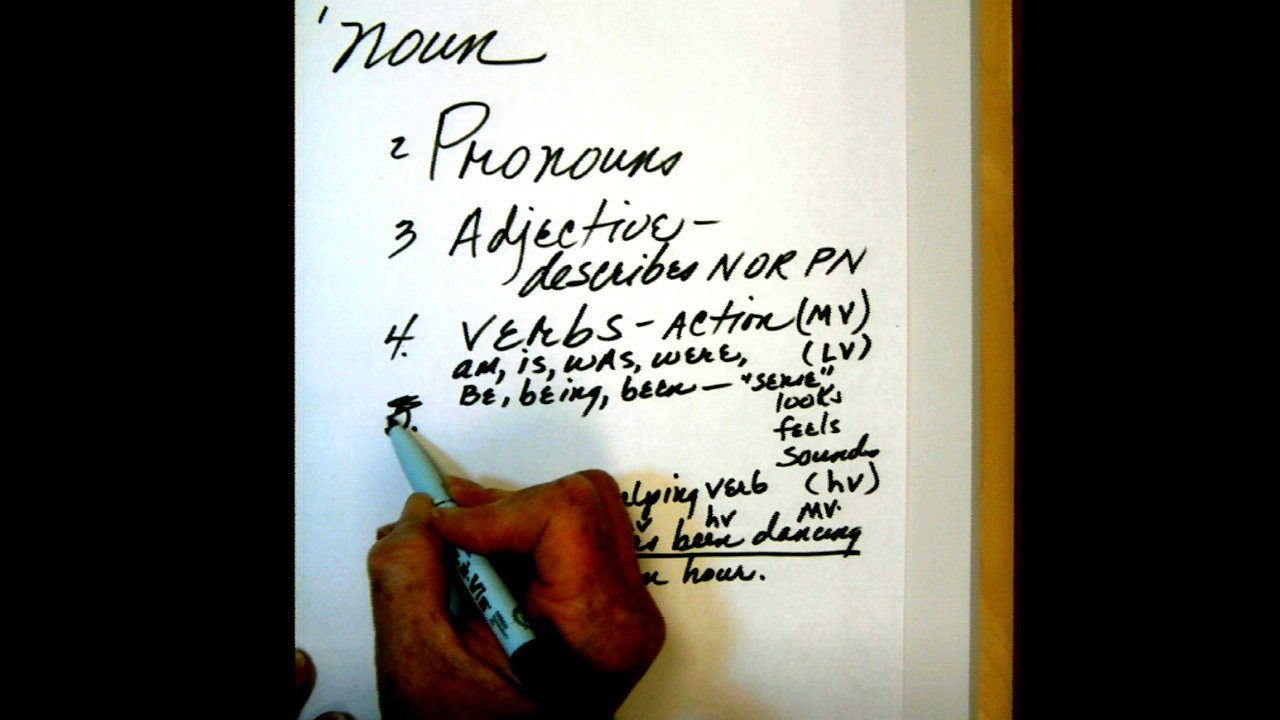 1 Noun
2 Pronouns
3 Adjective -
describes N OR PN
4. VERBS - ACTION (MV)
am, is, was, were, (LV)
BE, being, been - "sense"
looks
feels
sounds
verb (hv)
hv MV.
been dancing
hour.
Vis